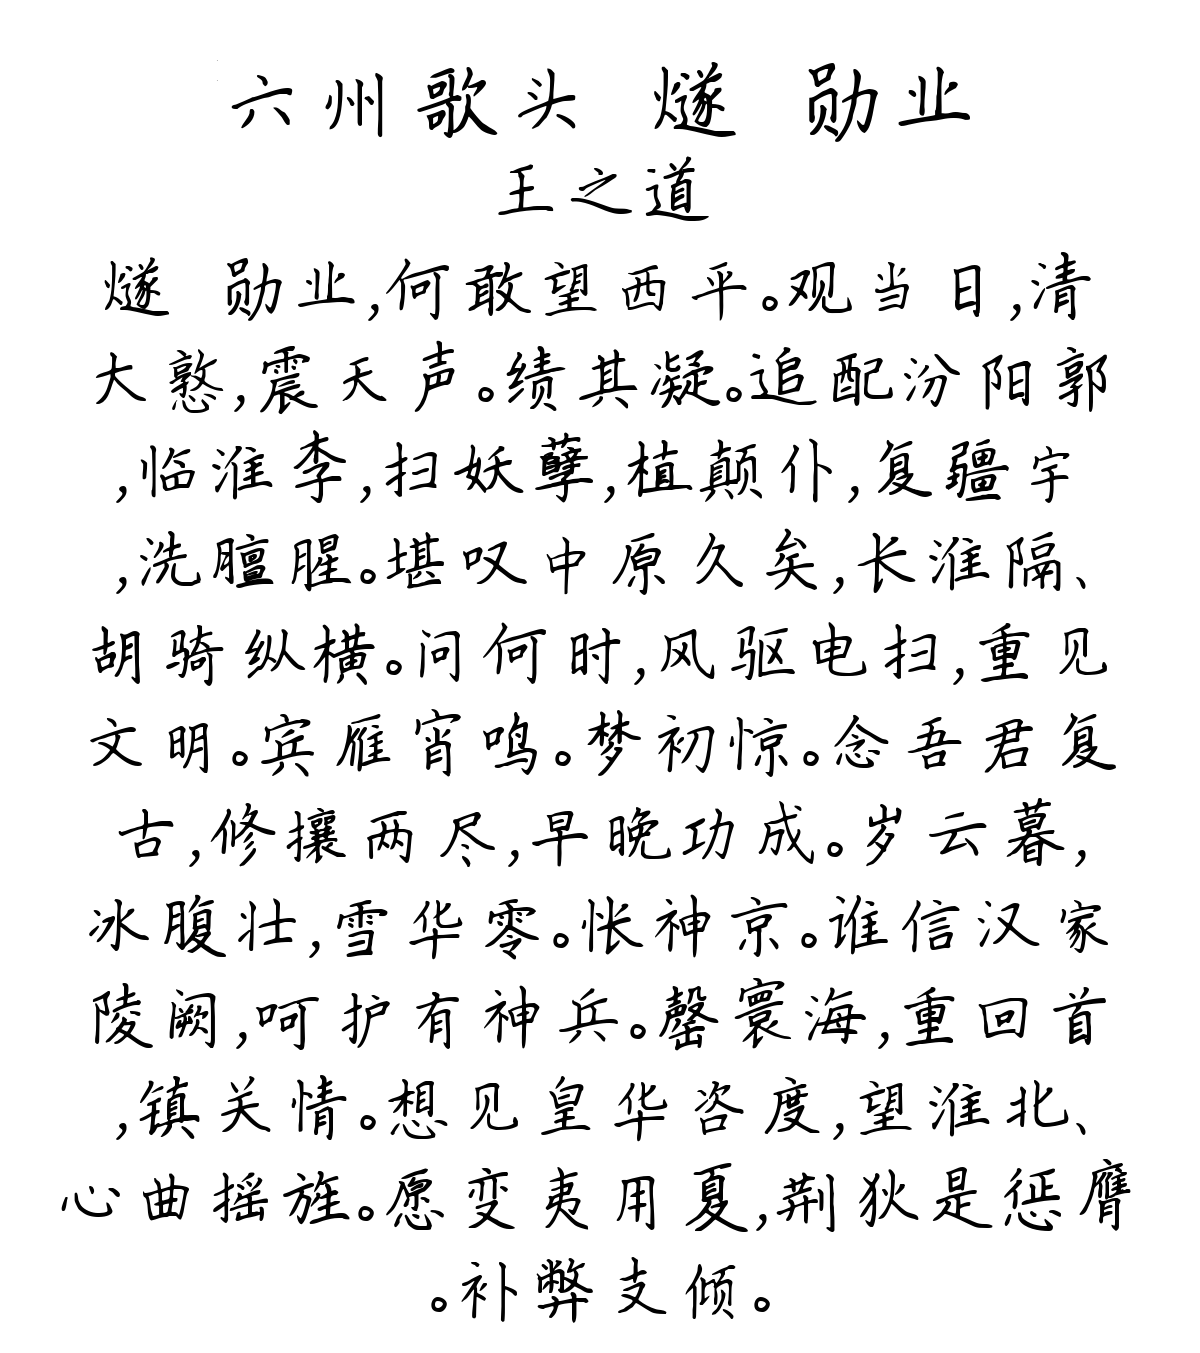 六州歌头 燧 勋业
王之道
燧 勋业,何敢望西平。观当日,清
大憝,震天声。绩其凝。追配汾阳郭
,临淮李,扫妖孽,植颠仆,复疆宇
,洗膻腥。堪叹中原久矣,长淮隔、
胡骑纵横。问何时,风驱电扫,重见
文明。宾雁宵鸣。梦初惊。念吾君复
古,修攘两尽,早晚功成。岁云暮,
冰腹壮,雪华零。怅神京。谁信汉家
陵阙,呵护有神兵。罄寰海,重回首
,镇关情。想见皇华咨度,望淮北、
心曲摇旌。愿变夷用夏,荆狄是惩膺
。补弊支倾。